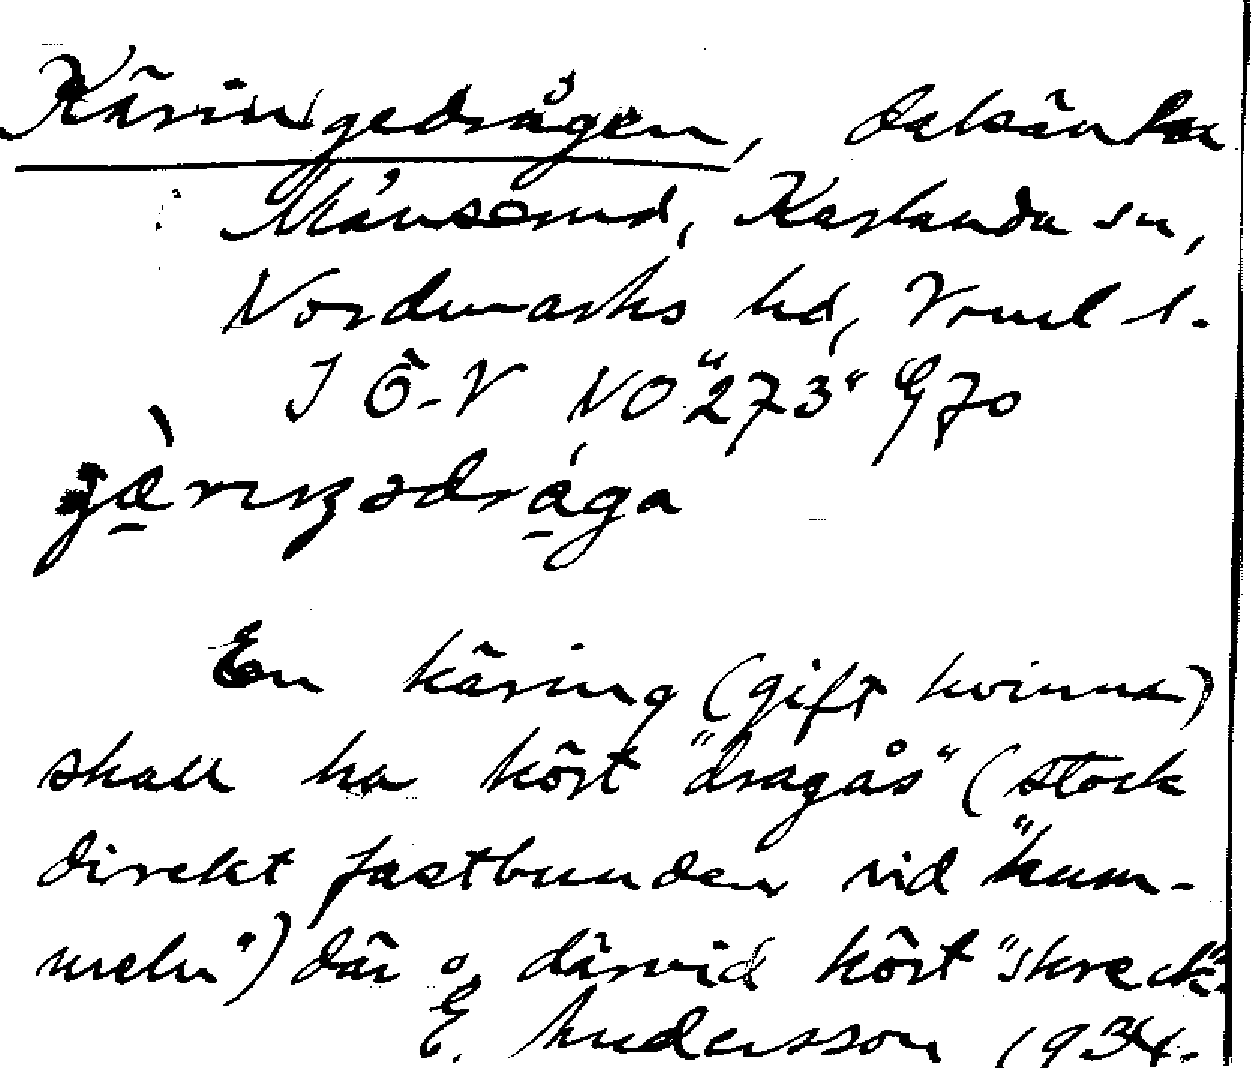 Käringedrågen, dalsänka
Månserud, Karlanda sn,
Nordmarks hd, Vrml l.
I Ö-V NO "273" G 70
En käring (gift kvinna)
skall ha kört "dragås" (stock
direkt fastbunden vid "hum-
meln") där o. därvid kört "skreck".
E. Andersson 1934.